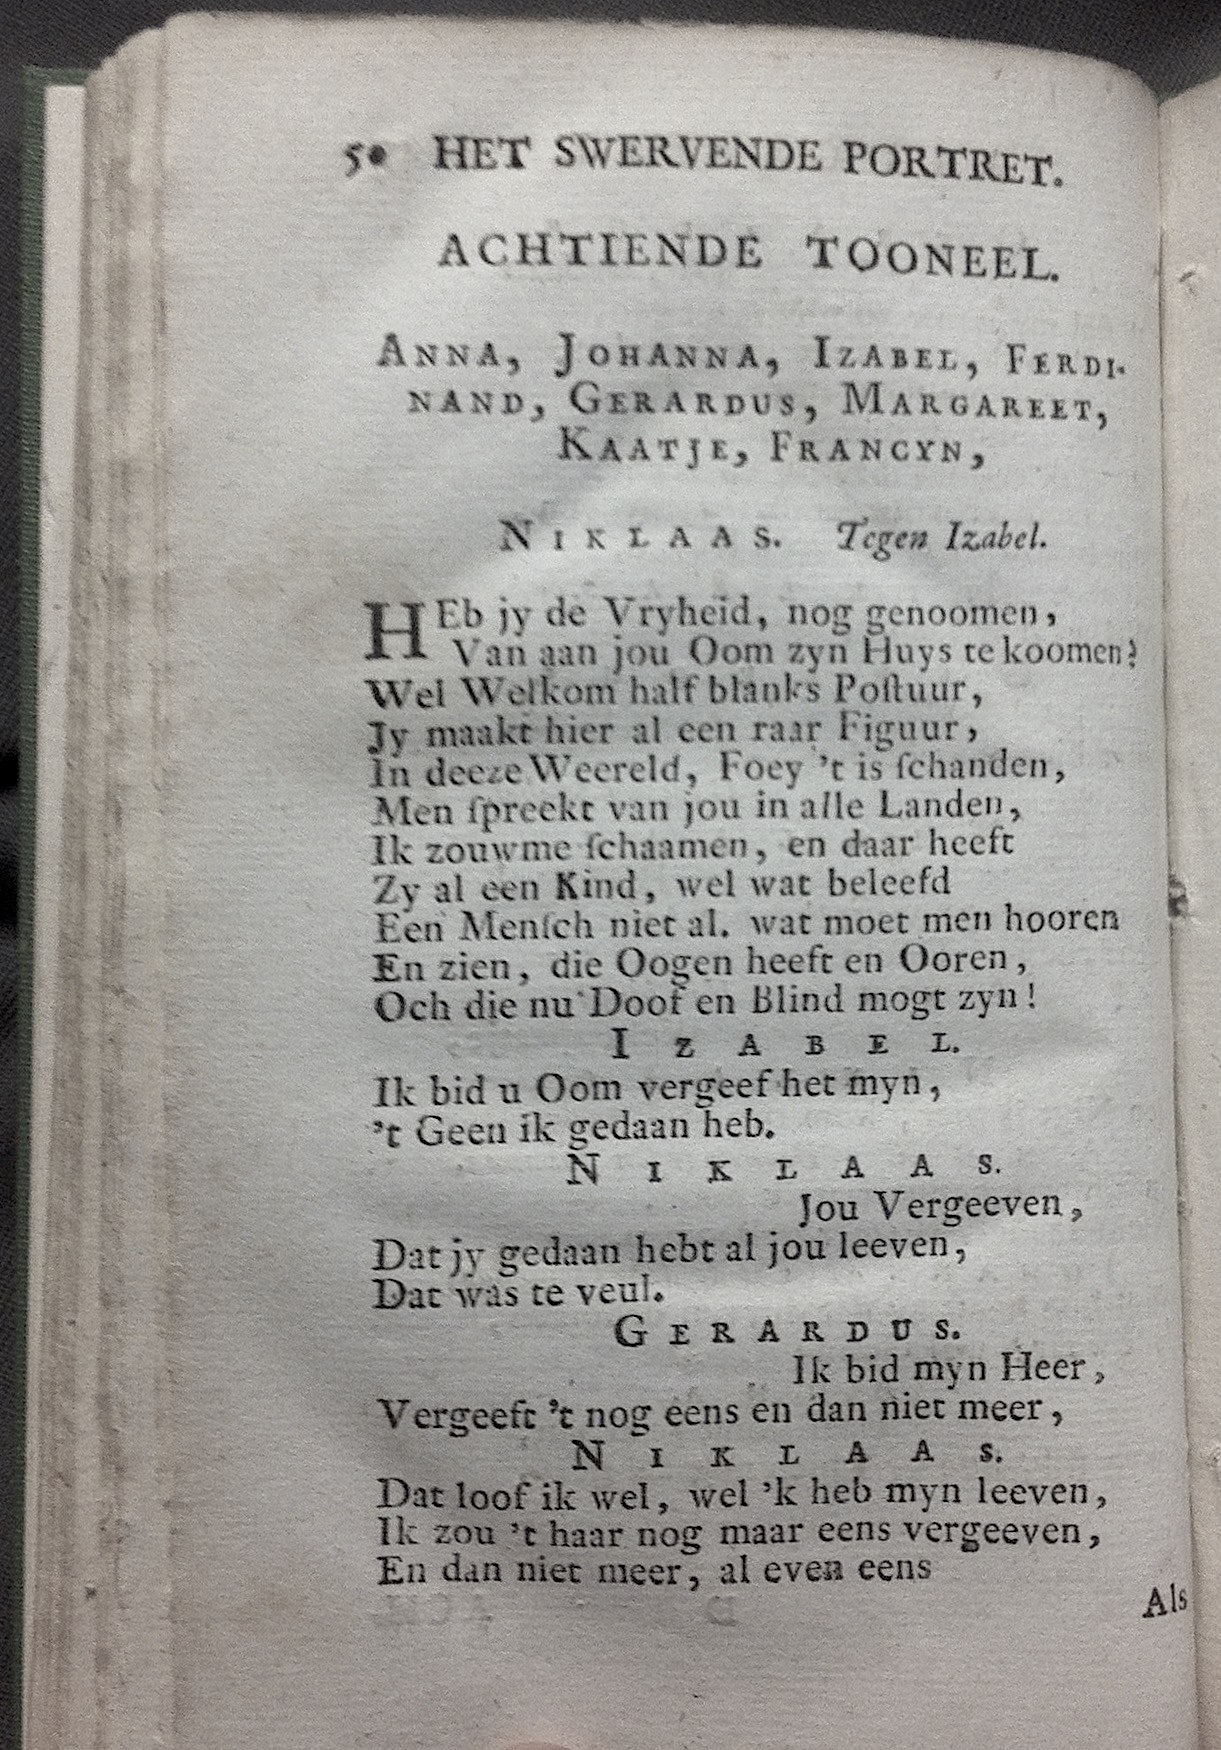 50 HET SWERVENDE PORTRET.
ACHTIENDE TOONEEL.
ANNA, JOHANNA, IZABEL, FERDI-
NAND, GERARDUS, MARGAREET,
KAATJE, FRANCYN,
NIKLAAS. Tegen Izabel.
HEb jy de Vryheid, nog genoomen,
Van aan jou Oom zyn Huys te koomen?
Wel Welkom half blanks Poſtuur,
Jy maakt hier al een raar Figuur,
In deeze Weereld, Foey 't is ſchanden,
Men ſpreekt van jou in alle Landen,
Ik zouwme ſchaamen, en daar heeft
Zy al een Kind, wel wat beleefd
Een Menſch niet al. wat moet men hooren
En zien, die Oogen heeft en Ooren,
Och die nu Doof en Blind mogt zyn!
IZABEL.
Ik bid u Oom vergeef het myn,
't Geen ik gedaan heb.
NIKLAAS.
Jou Vergeeven,
Dat jy gedaan hebt al jou leeven,
Dat was te veul.
GERARDUS.
Ik bid myn Heer,
Vergeeft 't nog eens en dan niet meer,
NIKLAAS.
Dat loof ik wel, wel 'k heb myn leeven,
Ik zou 't haar nog maar eens vergeeven,
En dan niet meer, al even eens
Als